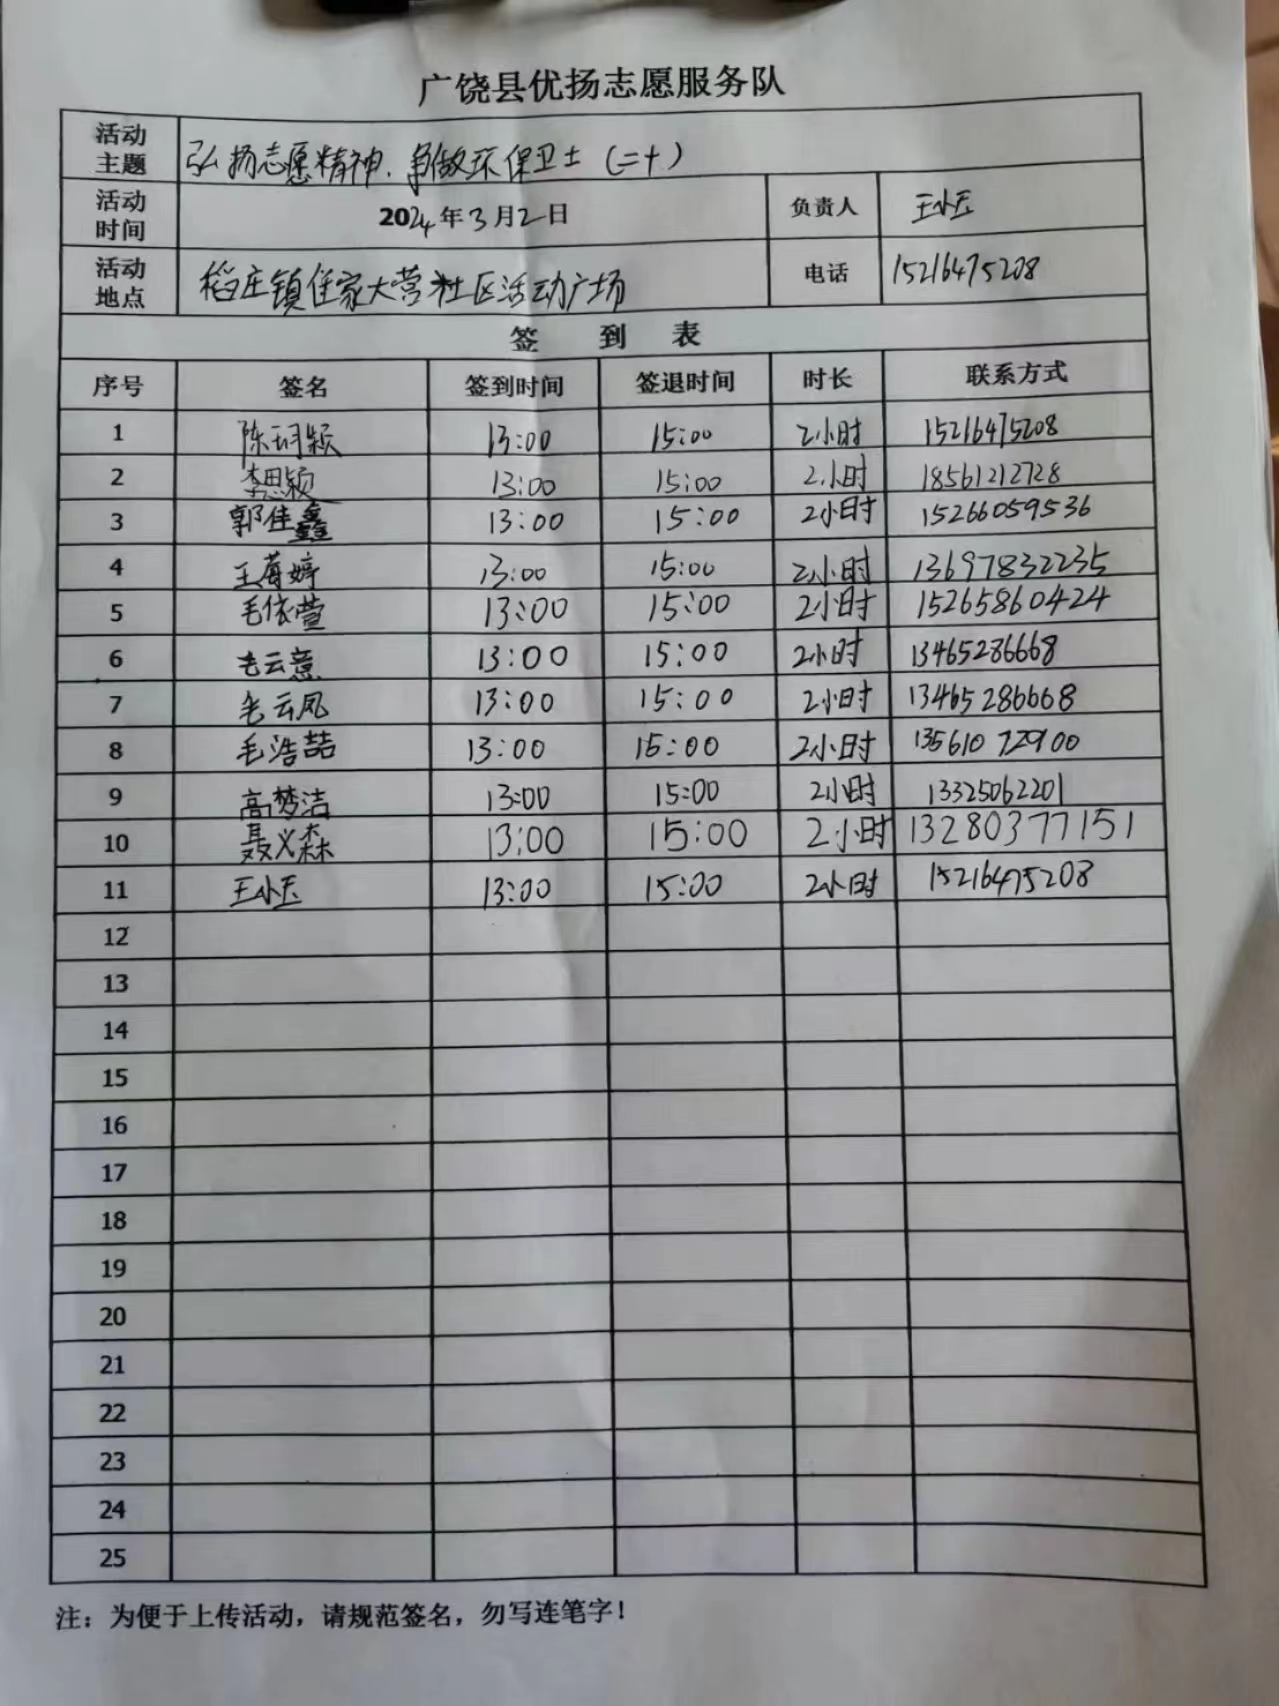 广饶县优扬志愿服务队
活动主题 弘扬志愿精神.争做环保卫士(二十)
活动时间 2024年3月2日 负责人 王小玉
活动地点 稻庄镇任家大营社区活动广场 电话 15216475208
签 到 表
序号 签名 签到时间 签退时间 时长 联系方式
1 陈玥颖 13:00 15:00 2小时 15216475208
2 李思颖 13:00 15:00 2小时 18561212728
3 郭佳鑫 13:00 15:00 2小时 15266059536
4 王莓婷 13:00 15:00 2小时 13697832235
5 毛依萱 13:00 15:00 2小时 15265860424
6 毛云意 13:00 15:00 2小时 13465286668
7 毛云凤 13:00 15:00 2小时 13465286668
8 毛浩喆 13:00 15:00 2小时 13561072900
9 高梦洁 13:00 15:00 2小时 13325062201
10 聂义森 13:00 15:00 2小时 13280377151
11 王小玉 13:00 15:00 2小时 15216475208
12
13
14
15
16
17
18
19
20
21
22
23
24
25
注：为便于上传活动，请规范签名，勿写连笔字！